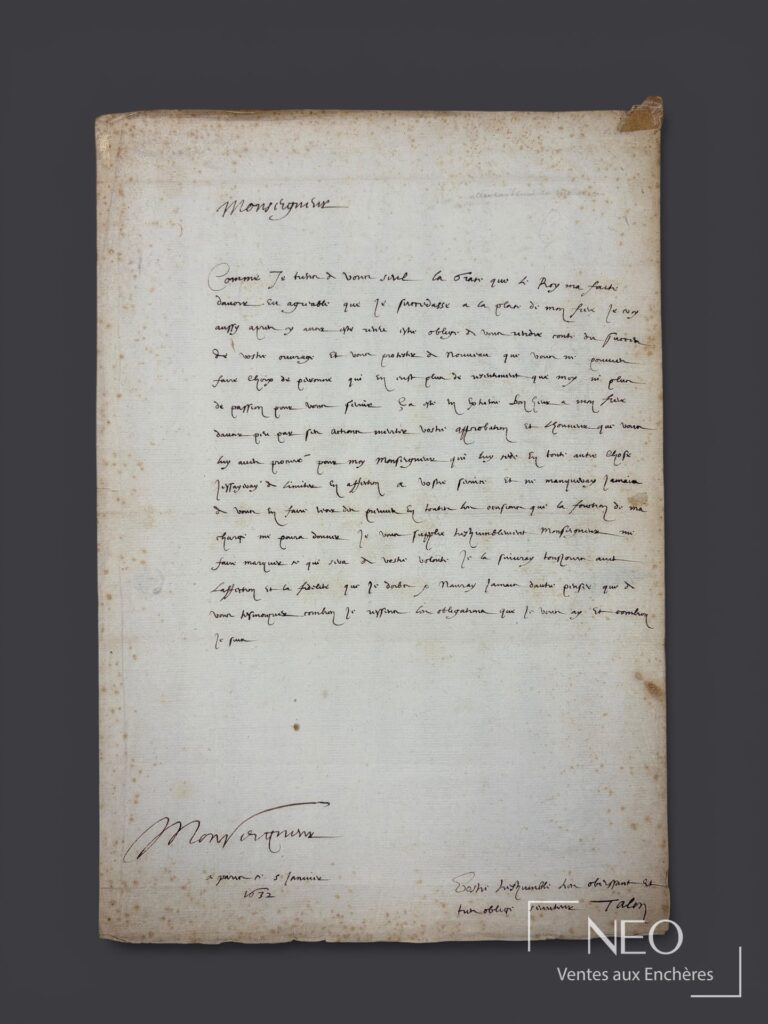 Monseigneur
Comme Je tiens de vous seul la Grace que le Roy ma faite
davoir eu agreable que Je succedasse a la place de mon frere Je croy
aussy apres y avoir este receu estre oblige de vous rendre conte du succes
de vostre ouvrage Et vous protester de Nouveau que vous ne pouvies
faire Choix de personne qui en eust plus de resentiment que moy ni plus
de passion pour vous servir Ca este un Extreme bon heur a mon frere
davoir peu par ses actions meriter vostre approbation Et Lhonneur que vous
luy avies procuré pour moy Monseigneur qui luy cede En toute autre Chose
Jessayeray de Limiter En affection a vostre service Et ne manqueray Jamais
de vous en faire voir des preuves En toutes les occasions que la fonction de ma
charge me poura donner Je vous supplie treshumblement Monseigneur me
faire marquer ce qui sera de vostre volonté Je la suivray tousjours avec
Laffection Et la fidelité que Je dois & Nauray Jamais dautre pensee que de
vous tesmoigner combien Je ressens les obligations que Je vous ay Et combien
Je suis
Monseigneur
a paris ce 5 Janvier
1632
Vostre treshumble tres obeissant Et
tres obligé serviteur Talon
NEO
Ventes aux Enchères